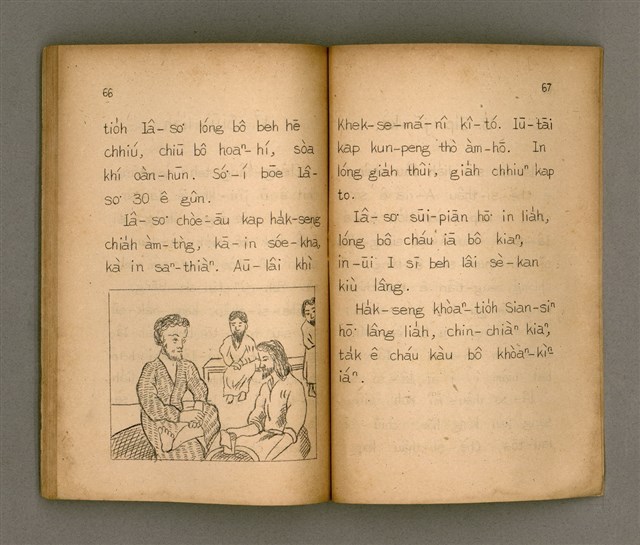 66
tio̍h Iâ-so͘ lóng bô beh hē
chhiú, chiū bô hoaⁿ-hí, sòa
khí oàn-hūn. Só͘-í bōe Iâ-
so͘ 30 ê gûn.
Iâ-so͘ chòe-āu kap ha̍k-seng
chia̍h àm-tn̄g, kā-in sóe-kha,
kà in saⁿ-thiàⁿ. Āu-lâi khì
67
Khek-se-má-nî kî-tó. Iū-tāi
kap kun-peng thò àm-hō. In
lóng gia̍h thûi, gia̍h chhiuⁿ kap
to.
Iâ-so͘ sūi-piān hō͘ in lia̍h,
lóng bô cháu iā bô kiaⁿ,
in-ūi I sī beh lâi sè-kan
kiù lâng.
Ha̍k-seng khòaⁿ-tio̍h Sian-siⁿ
hō͘ lâng lia̍h, chin-chiàⁿ kiaⁿ,
ta̍k ê cháu kàu bô khòaⁿ-kìⁿ
iáⁿ.